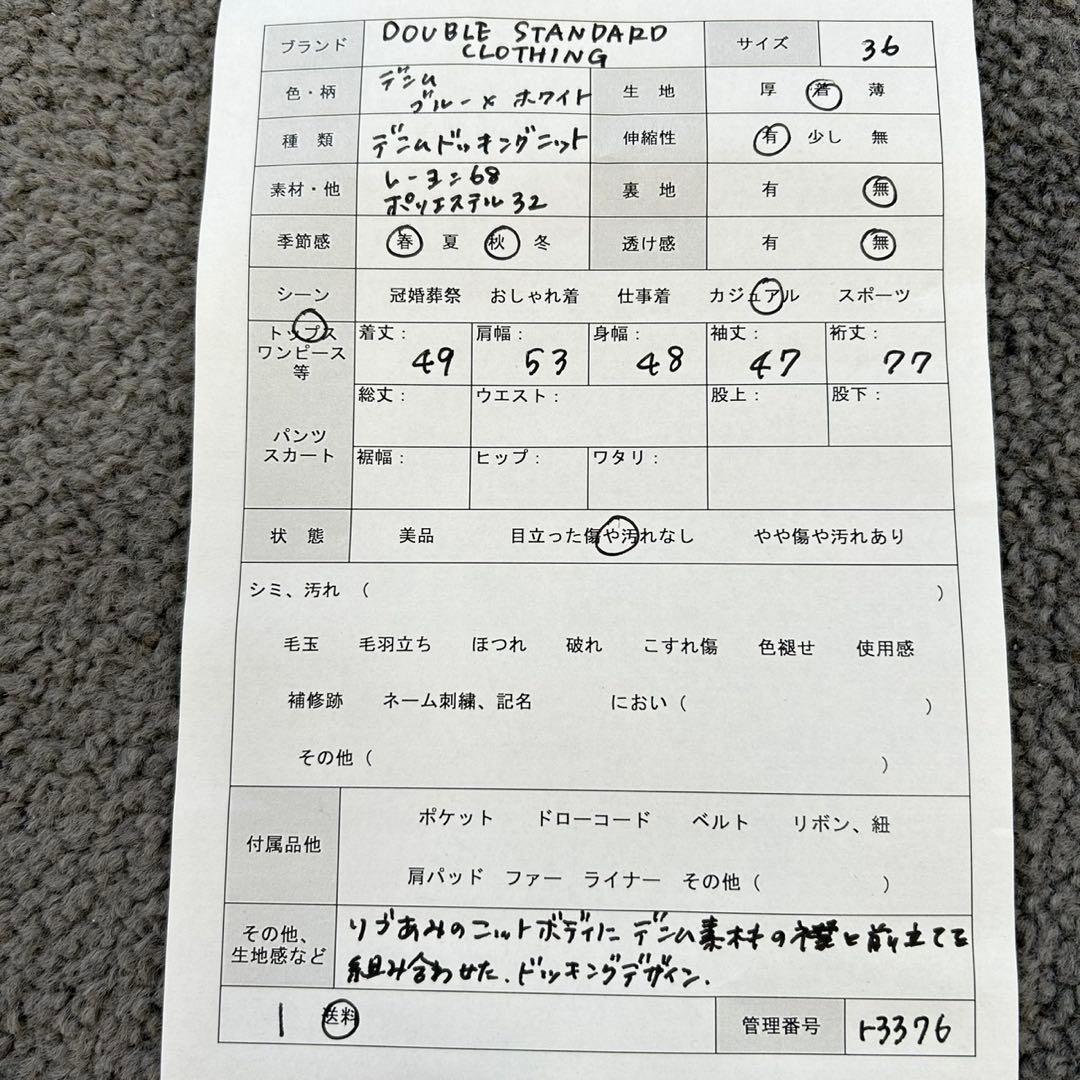 ブランド DOUBLE STANDARD CLOTHING サイズ 36
色・柄 デニム ブルー×ホワイト 生 地 厚 着 薄
種 類 デニムドッキングニット 伸縮性 有 少し 無
素材・他 レーヨン68 ポリエステル32 裏 地 有 無
季節感 春 夏 秋 冬 透け感 有 無
シーン 冠婚葬祭 おしゃれ着 仕事着 カジュアル スポーツ
トップス ワンピース 等 着丈：49 肩幅：53 身幅：48 袖丈：47 裄丈：77
パンツ スカート 総丈： ウエスト： 股上： 股下：
裾幅： ヒップ： ワタリ：
状 態 美品 目立った傷や汚れなし やや傷や汚れあり
シミ、汚れ （ ）
毛玉 毛羽立ち ほつれ 破れ こすれ傷 色褪せ 使用感
補修跡 ネーム刺繍、記名 におい（ ）
その他（ ）
付属品他 ポケット ドローコード ベルト リボン、紐
肩パッド ファー ライナー その他（ ）
その他、生地感など リブあみのニットボディに デニム素材の襟と前立てを
組み合わせた、ドッキングデザイン.
1 送料 管理番号 3376